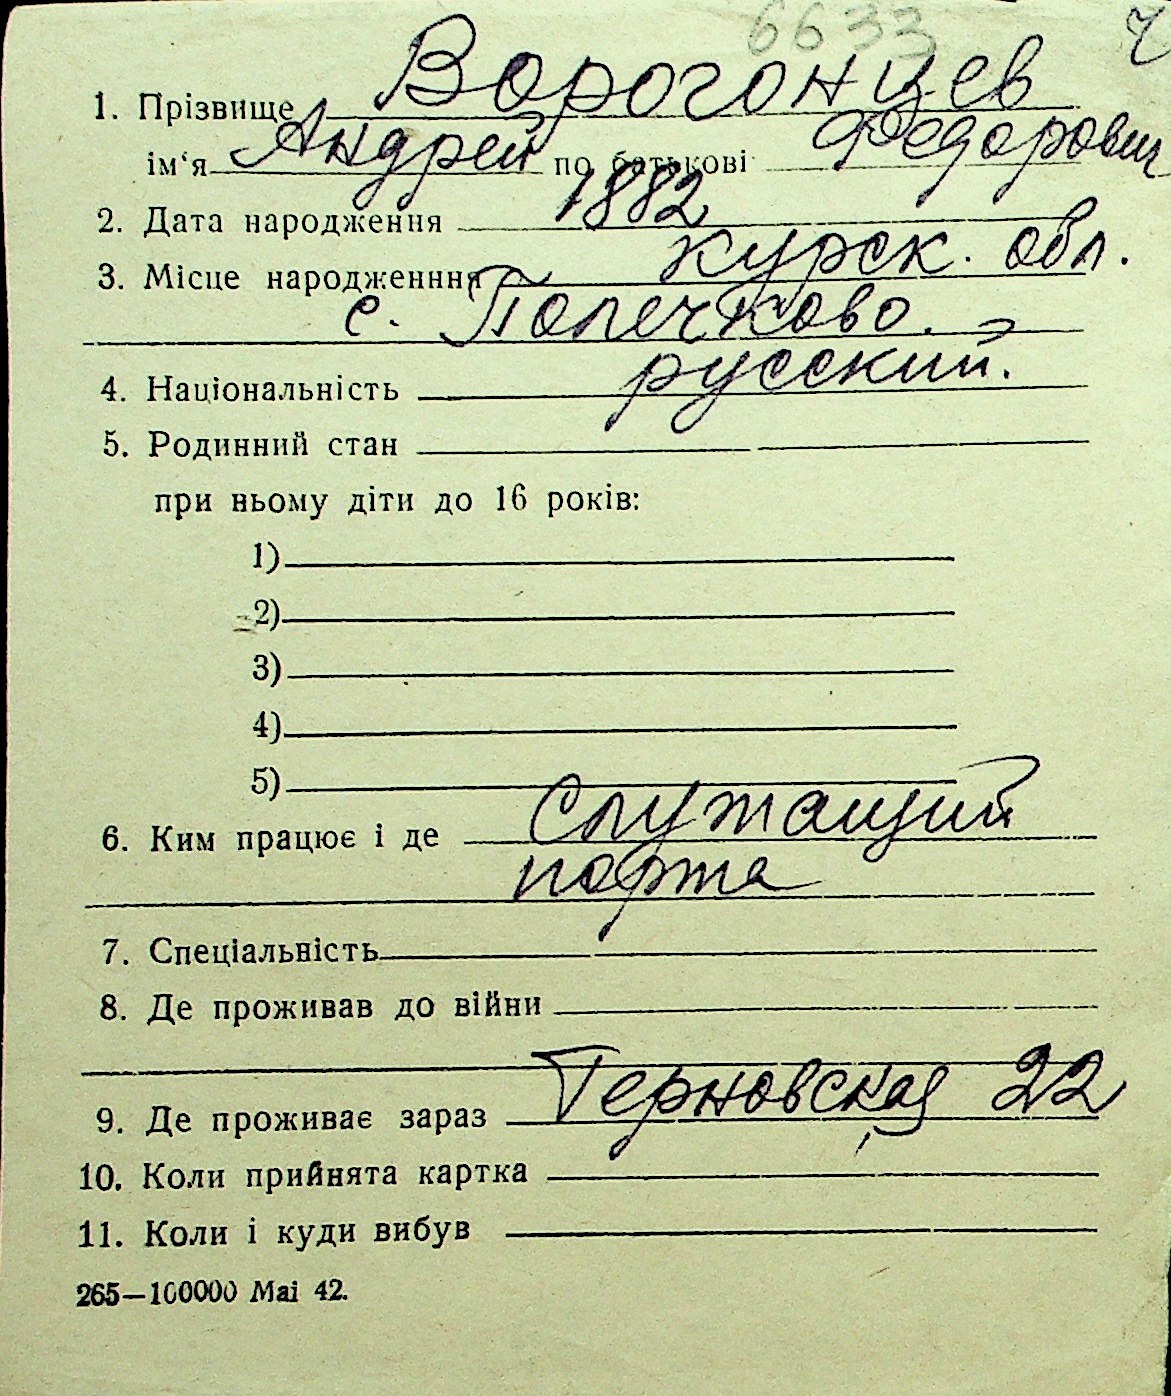 6633
1. Прізвище Ворогонцев
ім‘я Андрей по батькові Федорович
2. Дата народження 1882
3. Місце народженння Курск. обл.
с. Поречково.
4. Національність русский.
5. Родинний стан
при ньому діти до 16 років:
1)
2)
3)
4)
5)
6. Ким працює і де Служащий
порта
7. Спеціальність
8. Де проживав до війни
9. Де проживає зараз Терновская 22
10. Коли прийнята картка
11. Коли і куди вибув
265—100000 Mai 42.